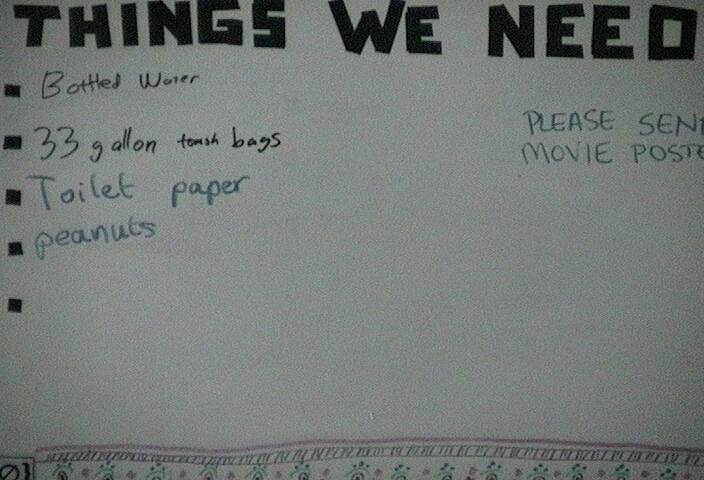 THINGS WE NEED
Bottled Water
33 gallon trash bags
Toilet paper
peanuts
PLEASE SEN
MOVIE POSTE